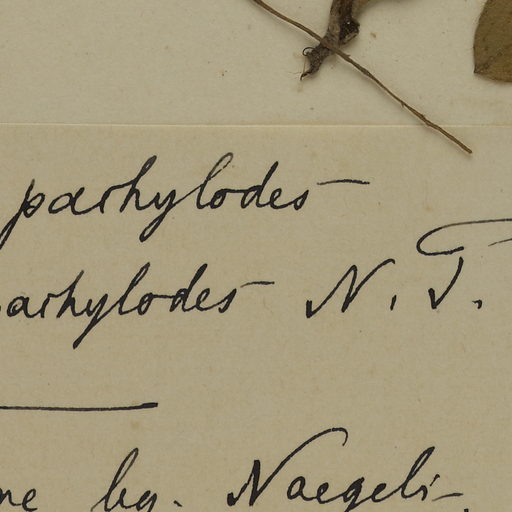 pachylodes
achylodes N. T.
ne by. Naegeli